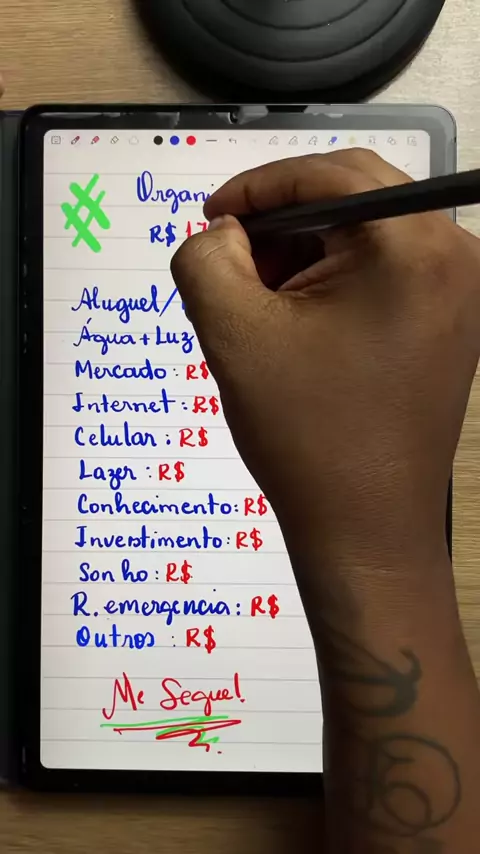 #
R$ 17
Aluguel/
Água + Luz
Mercado: R$
Internet: R$
Celular: R$
Lazer: R$
Conhecimento: R$
Investimento: R$
Sonho: R$
R. emergencia: R$
Outros: R$
Me Segue!